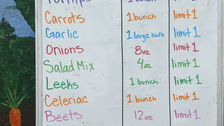 Turnips 1 bunch limit 1
Carrots 1 bunch limit 1
Garlic 1 large bulb limit 1
Onions 8oz limit 1
Salad Mix 4oz limit 1
Leeks 1 bunch limit 1
Celeriac 1 bunch limit 1
Beets 12oz limit 1